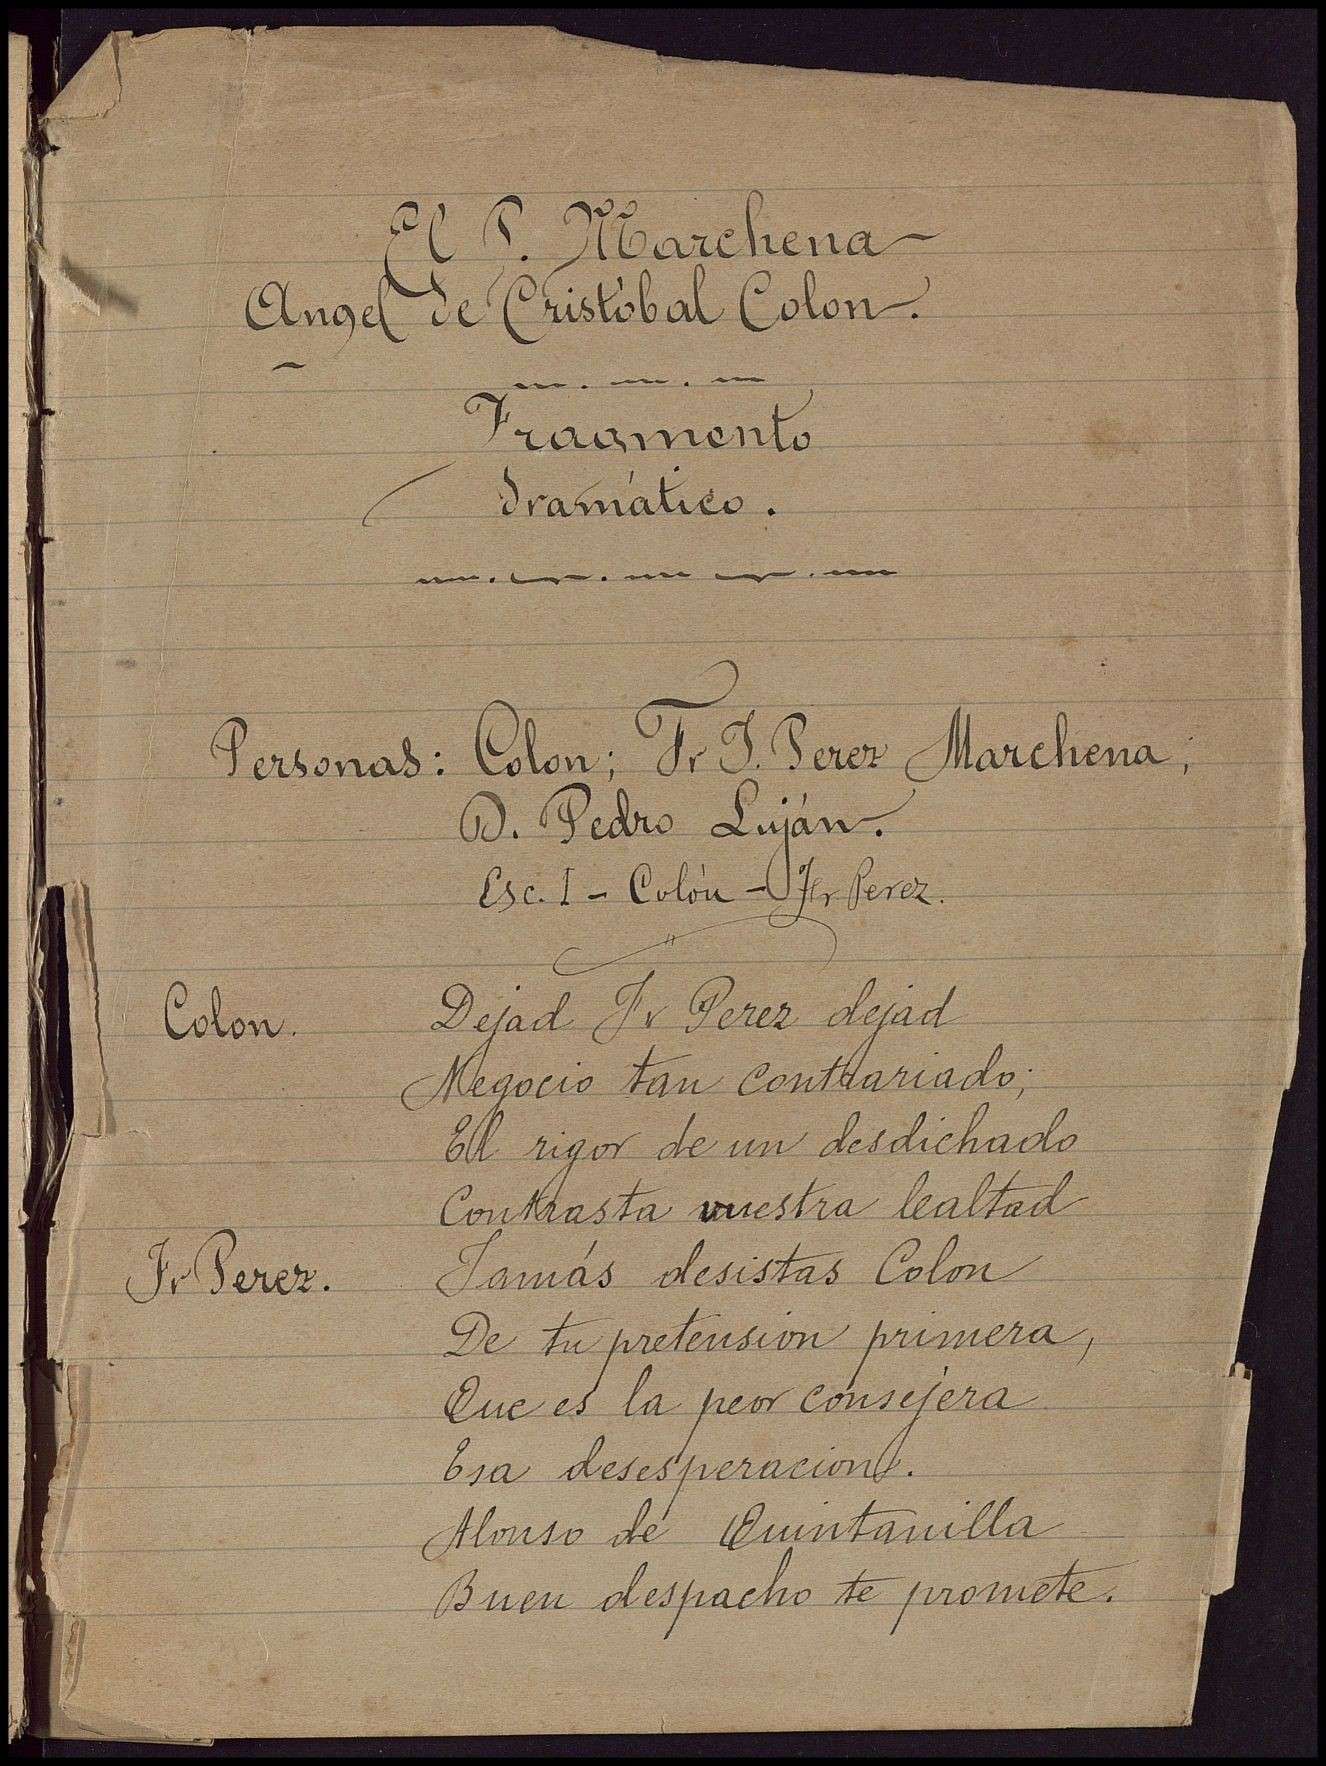 El P. Marchena
Angel de Cristóbal Colon.
Fragmento
dramático.
Personas: Colon; Fr J. Perez Marchena;
D. Pedro Luján.
Esc. I - Colón - Fr Perez.
Colon. Dejad Fr Perez dejad
Negocio tan contrariado;
El rigor de un desdichado
Contrasta vuestra lealtad
Fr Perez. Jamás desistas Colon
De tu pretension primera,
Que es la peor consejera
Esa desesperacion.
Alonso de Quintanilla
Buen despacho te promete.